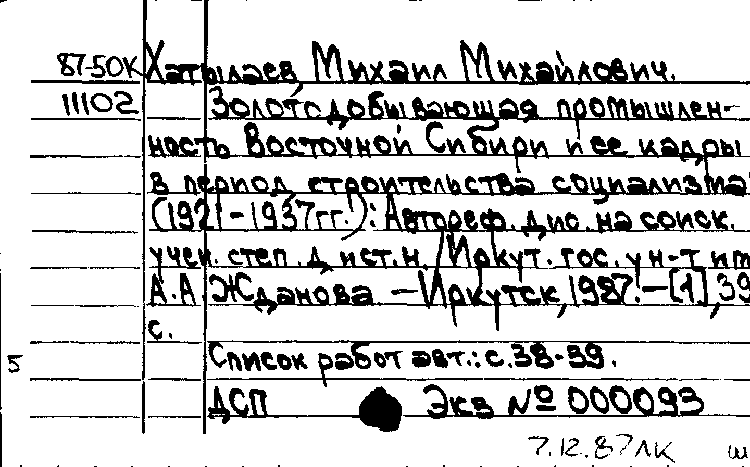 87-50К Хатылаев, Михаил Михайлович.
11102 Золотодобывающая промышлен-
ность Восточной Сибири и ее кадры
в период строительства социализма
(1921-1937гг.): Автореф. дис. на соиск.
учен. степ. д. ист. н. /Иркут. гос. ун-т им
А.А. Жданова. —Иркутск, 1987. —[1], 39
с.
5 Список работ авт.: с.38-39.
ДСП Экз № 000093
7.12.87 ЛК ш